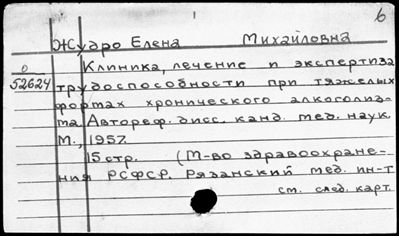 б
Жудро Елена Михайловна
Клиника, лечение и экспертиза
О
52624
трудоспособности при тяжелых
формах хронического алкоголиз-
ма. Автореф. дисс. канд. мед. наук.
М., 1957.
15 стр. (М-во здравоохране-
ния РСФСР. Рязанский мед. ин-т
см. след. карт.